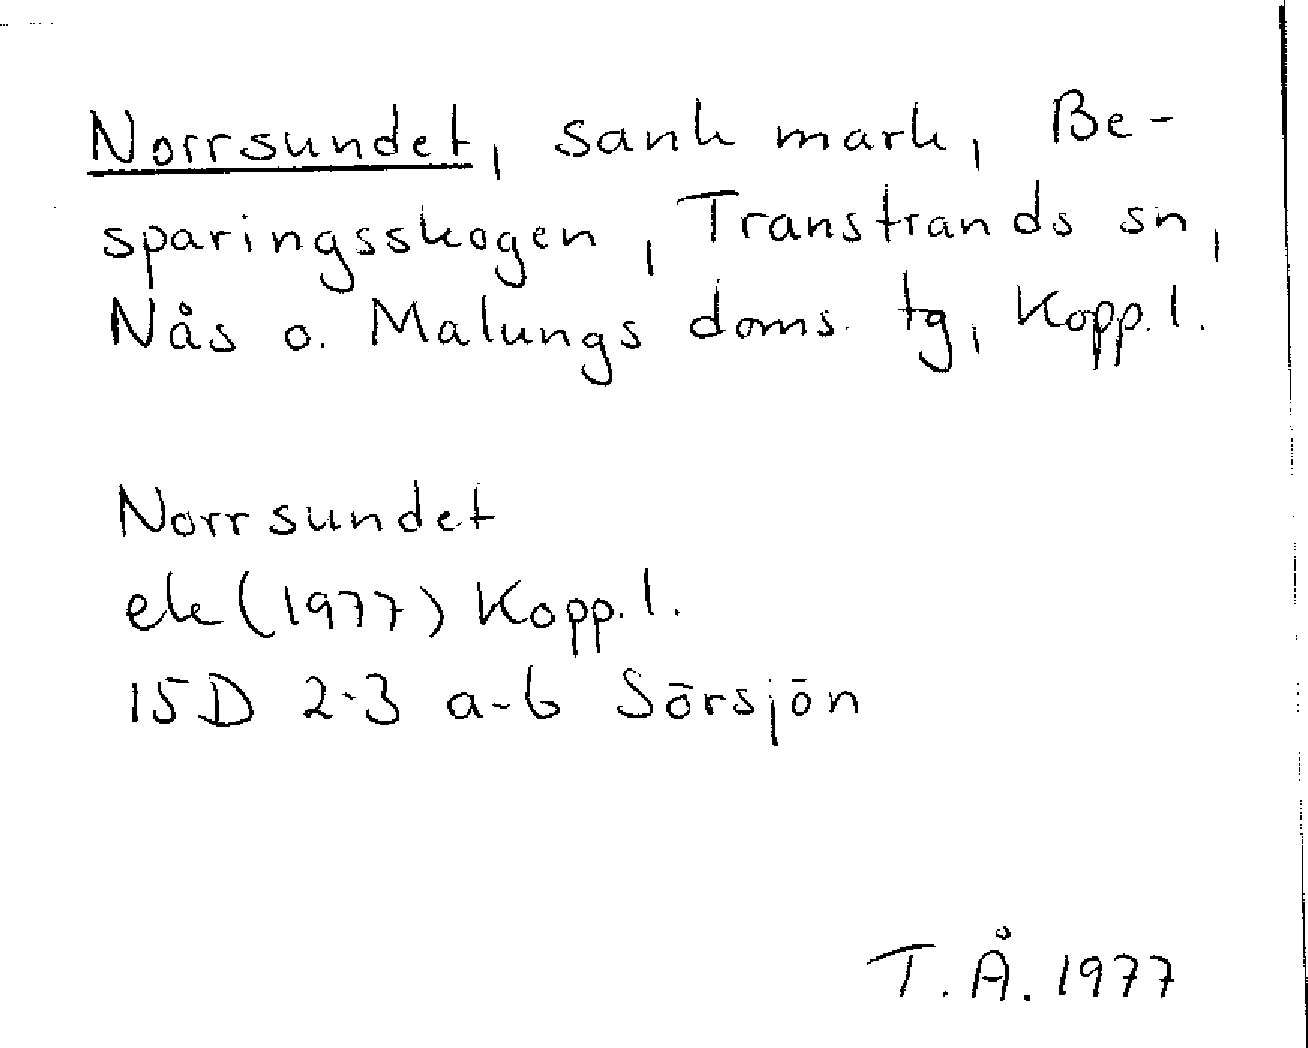 Norrsundet, sank mark, Be-
sparingsskogen, Transtrands sn,
Nås o. Malungs doms. tg, Kopp.l.
Norrsundet
ek (1977) Kopp.l.
15D 2-3 a-b Sörsjön
T.Å. 1977